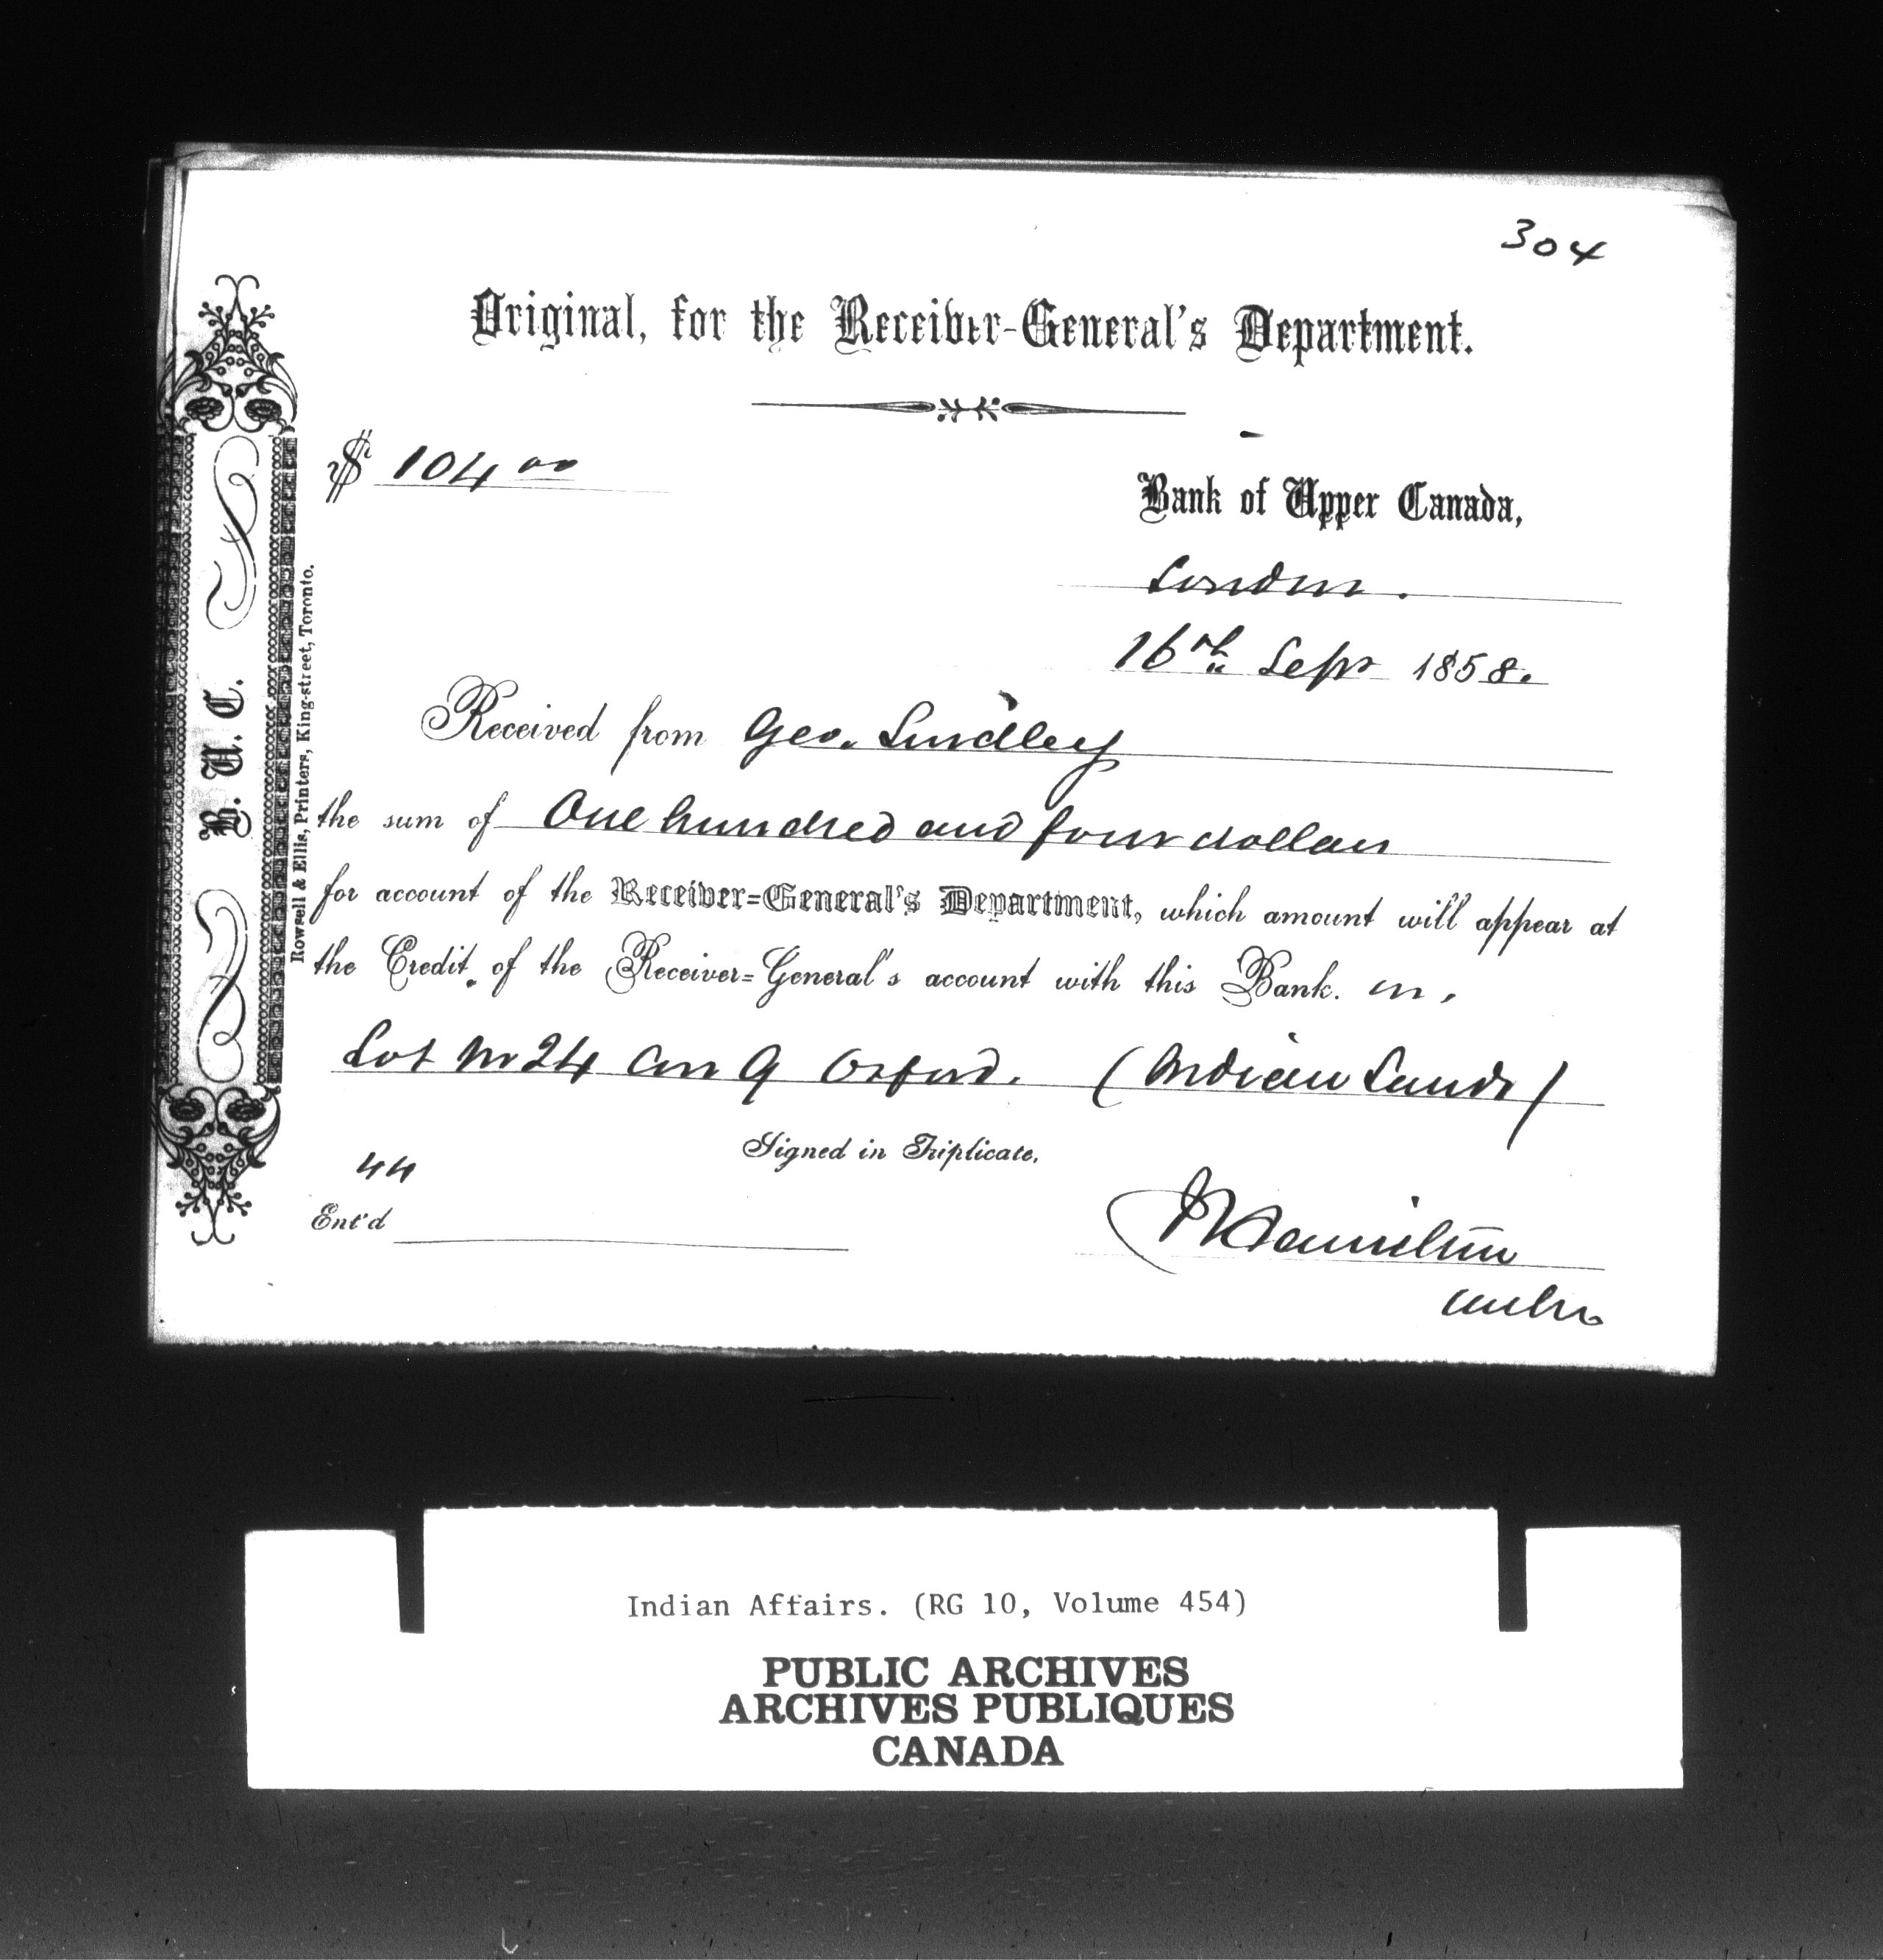 304
Original, for the Receiver-General's Department.
$ 104 00
Bank of Upper Canada,
London.
16th Sept 1858.
Received from Geo. Lindley
the sum of One hundred and four dollars
for account of the Receiver-General's Department, which amount will appear at
the Credit of the Receiver-General's account with this Bank. on
Lot No 24 Con 9 Orford. (Indian Lands)
Signed in Triplicate,
44
Ent'd
Hamilton
B. U. C.
Rowsell & Ellis, Printers, King-street, Toronto.
Indian Affairs. (RG 10, Volume 454)
PUBLIC ARCHIVES
ARCHIVES PUBLIQUES
CANADA